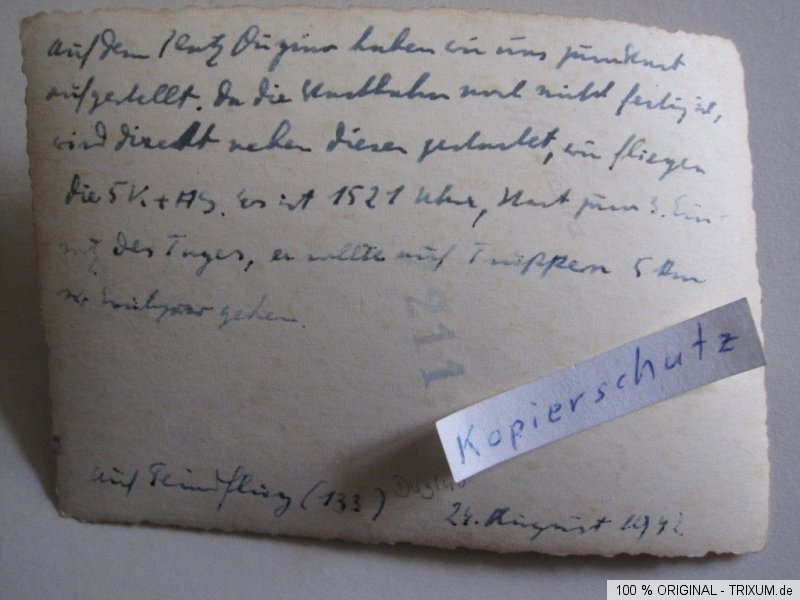 auf dem Platz Dugino haben wir uns zum Start
aufgestellt. Da die Startbahn noch nicht fertig ist,
wird direkt neben dieser gestartet, wir fliegen
die 5 K. + Es ist 1521 Uhr, Start zum 3. Ein-
satz des Tages, er sollte auf Truppen 5 km
vor gehen.
211
Kopierschutz
auf Feindflug (133) Dugino 24. August 1942
100 % ORIGINAL - TRIXUM.de